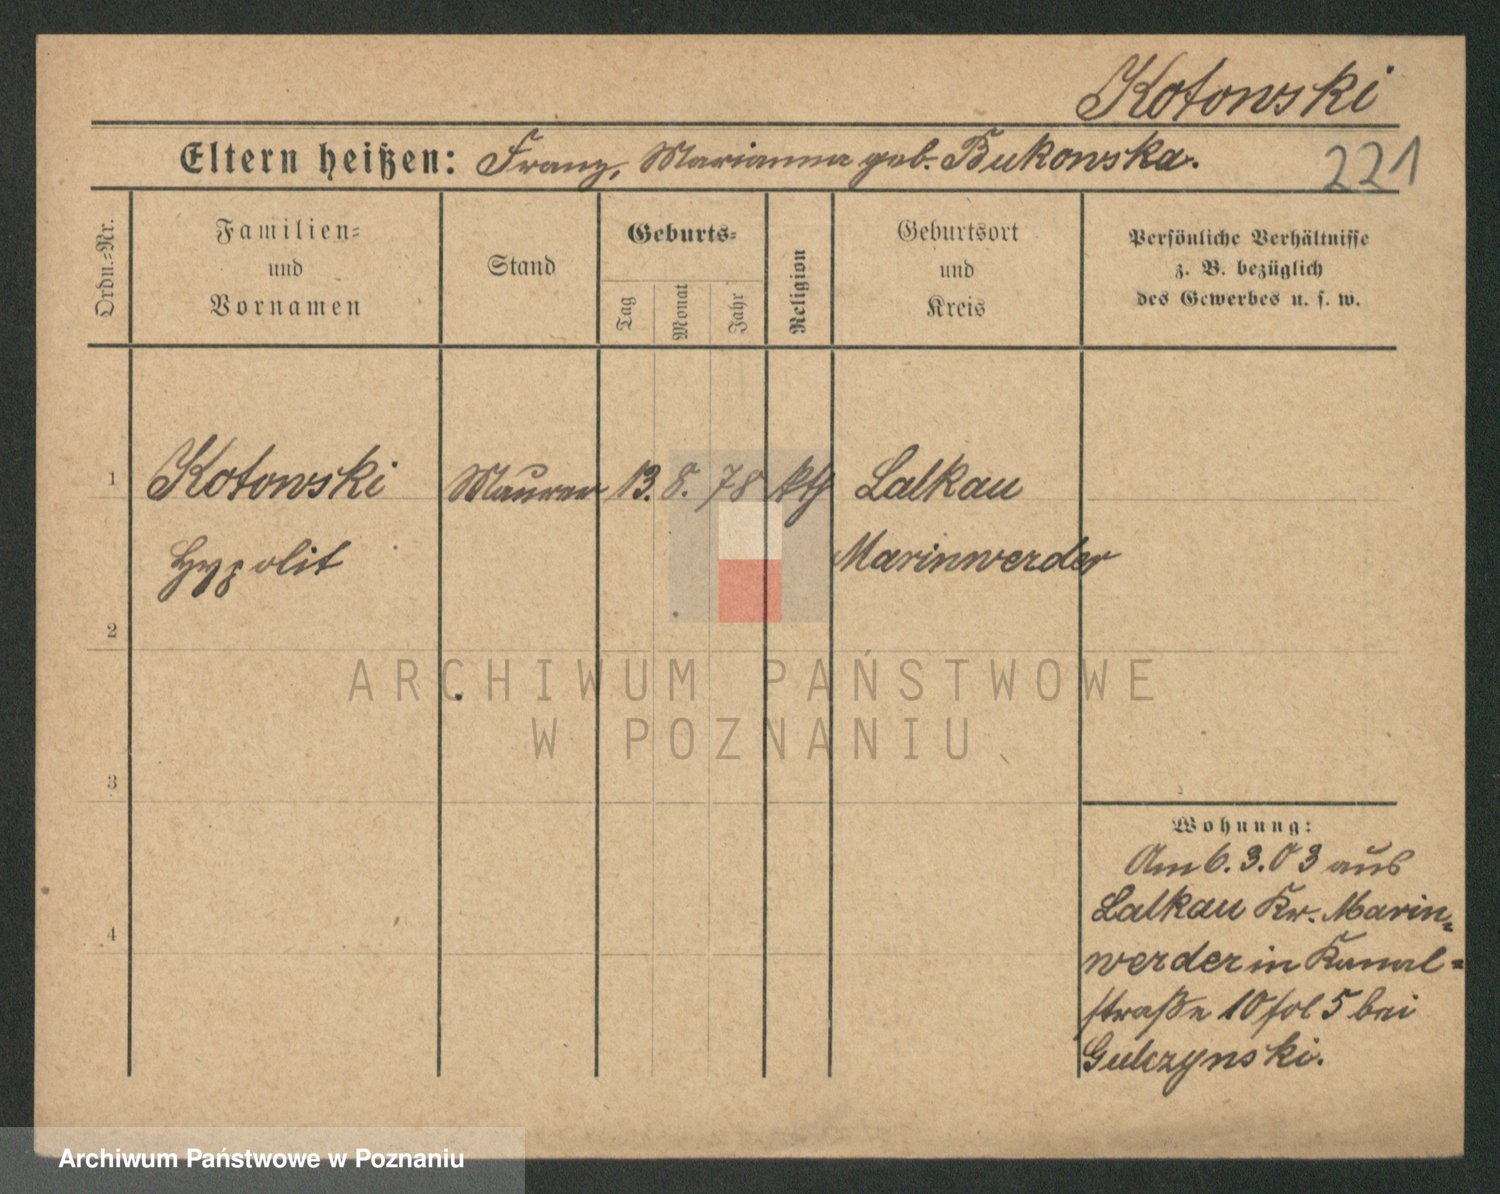 Kotowski
Eltern heißen: Franz, Marianna geb. Bukowska.
221
Ordn.=Nr.
Familien=
und
Vornamen
Stand
Geburts=
Tag
Monat
Jahr
Religion
Geburtsort
und
Kreis
Persönliche Verhältnisse
z. B. bezüglich
des Gewerbes u. s. w.
1 Kotowski Maurer 13. 8. 78 kth Lalkau
Hypolit Marinwerder
2
ARCHIWUM PAŃSTWOWE
W POZNANIU
3
Wohnung:
Am 6.3.03 aus
Lalkau Kr. Marin=
4
werder in Kanal=
straße 10 fol 5 bei
Gulczynski.
Archiwum Państwowe w Poznaniu